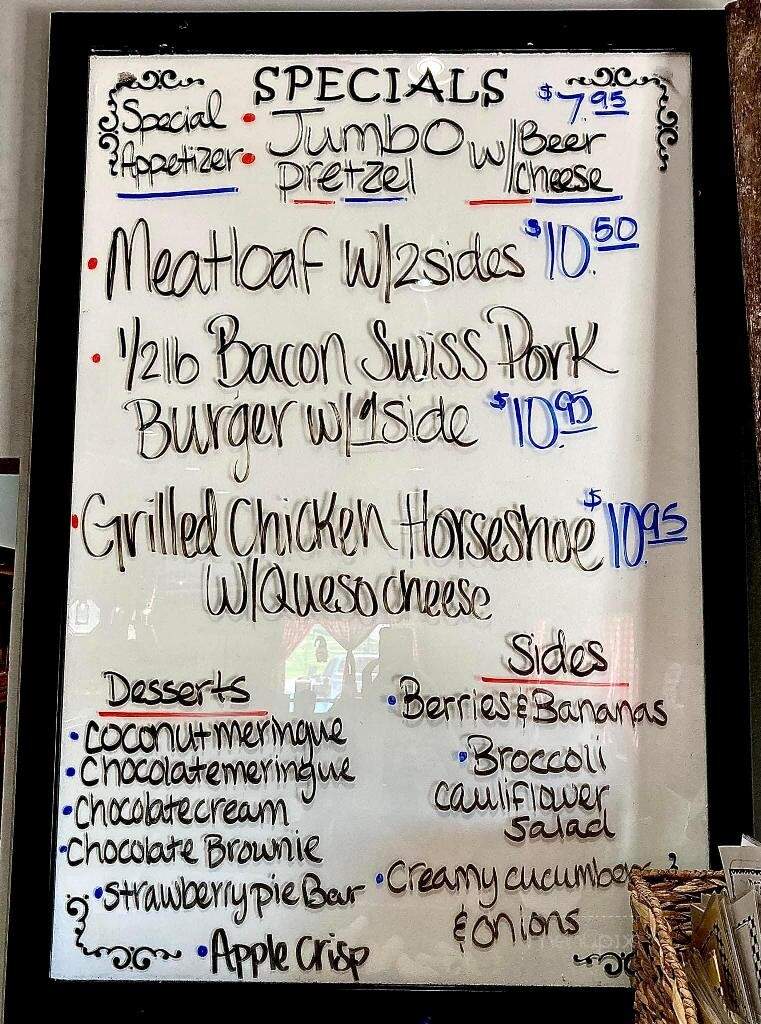 SPECIALS
Special
Appetizer
Jumbo
pretzel
w/Beer
cheese
$7.95
Meatloaf w/2sides $10.50
1/2lb Bacon Swiss Pork
Burger w/1side $10.95
Grilled Chicken Horseshoe $10.95
w/Queso cheese
Desserts
coconut meringue
Chocolate meringue
Chocolate cream
Chocolate Brownie
Strawberry pie Bar
Apple Crisp
Sides
Berries & Bananas
Broccoli
cauliflower
salad
Creamy cucumbers
& onions